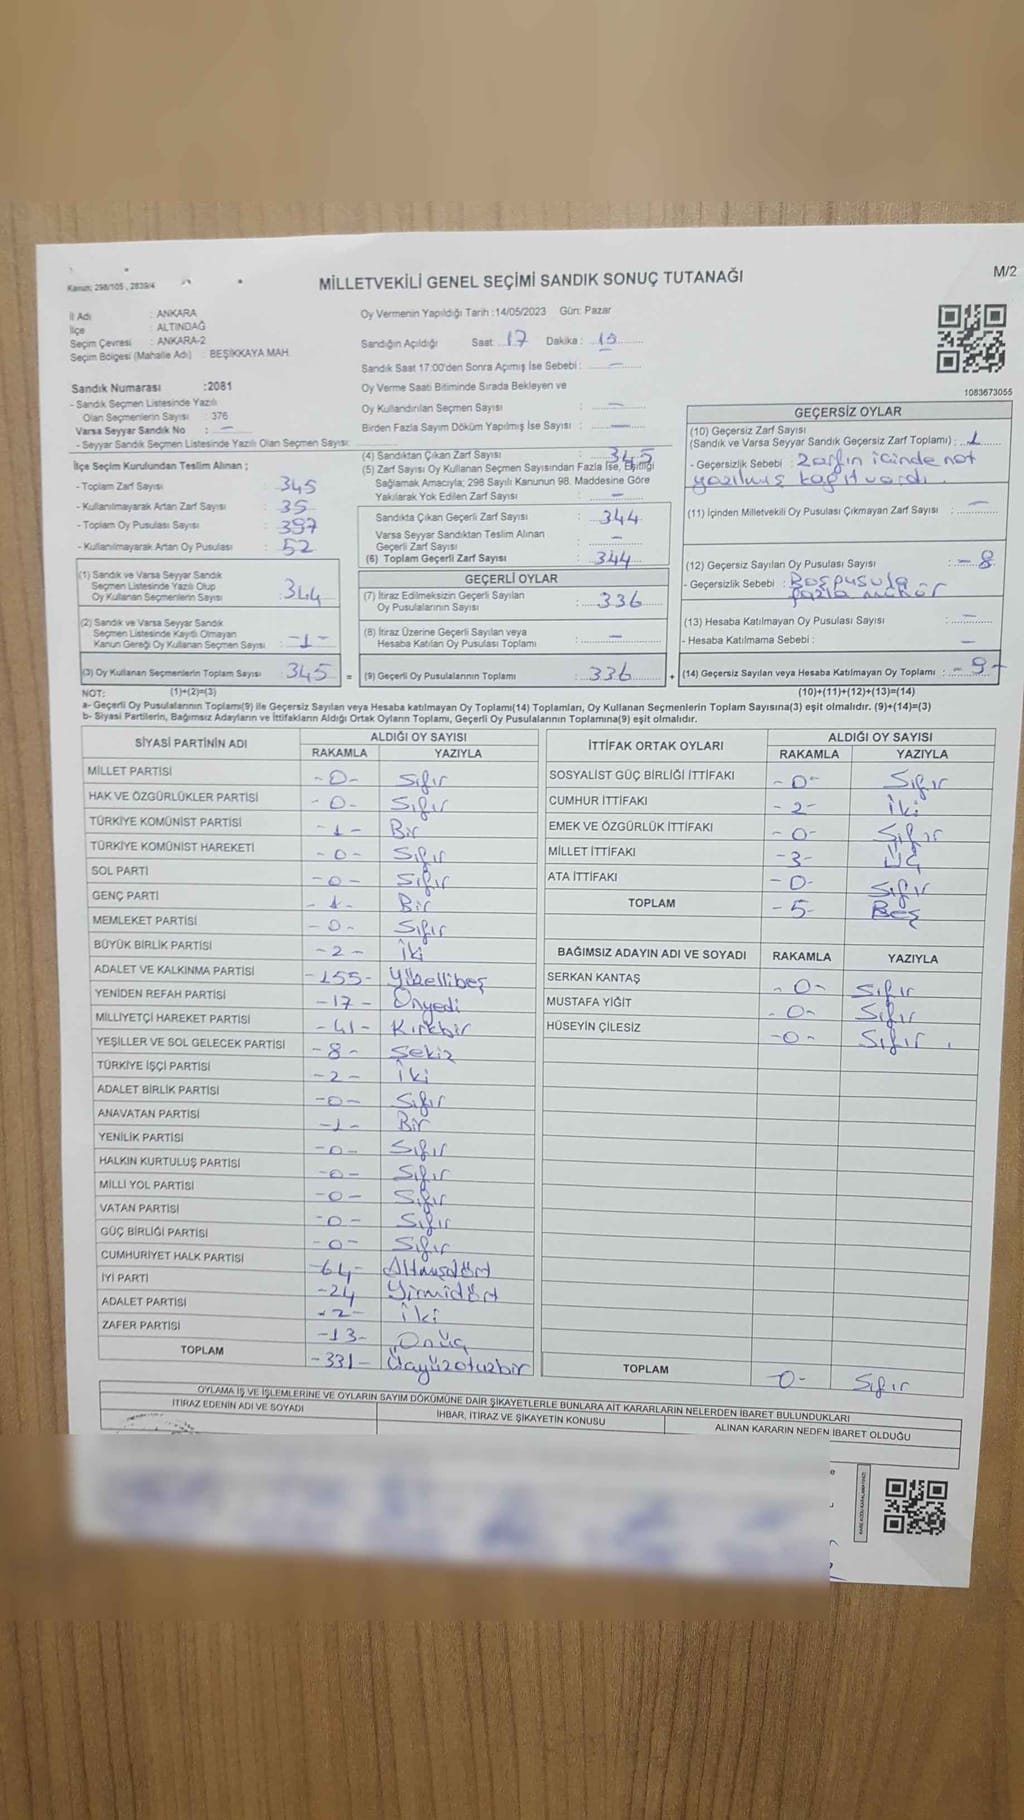 Kanun; 298/105 , 2839/4
MİLLETVEKİLİ GENEL SEÇİMİ SANDIK SONUÇ TUTANAĞI
M/2
İl Adı : ANKARA
İlçe : ALTINDAĞ
Seçim Çevresi : ANKARA-2
Seçim Bölgesi (Mahalle Adı) : BEŞİKKAYA MAH.
Sandık Numarası :2081
- Sandık Seçmen Listesinde Yazılı
Olan Seçmenlerin Sayısı : 376
Varsa Seyyar Sandık No : –
- Seyyar Sandık Seçmen Listesinde Yazılı Olan Seçmen Sayısı:
Oy Vermenin Yapıldığı Tarih :14/05/2023 Gün: Pazar
Sandığın Açıldığı Saat :17 Dakika : 15
Sandık Saat 17:00'den Sonra Açımış İse Sebebi : –
Oy Verme Saati Bitiminde Sırada Bekleyen ve
Oy Kullandırılan Seçmen Sayısı : –
Birden Fazla Sayım Döküm Yapılmış İse Sayısı : –
1083673055
İlçe Seçim Kurulundan Teslim Alınan ;
- Toplam Zarf Sayısı : 345
- Kullanılmayarak Artan Zarf Sayısı : 35
- Toplam Oy Pusulası Sayısı : 397
- Kullanılmayarak Artan Oy Pusulası : 52
(1) Sandık ve Varsa Seyyar Sandık
Seçmen Listesinde Yazılı Olup
Oy Kullanan Seçmenlerin Sayısı : 344
(2) Sandık ve Varsa Seyyar Sandık
Seçmen Listesinde Kayıtlı Olmayan
Kanun Gereği Oy Kullanan Seçmen Sayısı : -1-
(3) Oy Kullanan Seçmenlerin Toplam Sayısı : 345 =
(4) Sandıktan Çıkan Zarf Sayısı : 345
(5) Zarf Sayısı Oy Kullanan Seçmen Sayısından Fazla İse, Eşitliği
Sağlamak Amacıyla; 298 Sayılı Kanunun 98. Maddesine Göre
Yakılarak Yok Edilen Zarf Sayısı : –
Sandıkta Çıkan Geçerli Zarf Sayısı : 344
Varsa Seyyar Sandıktan Teslim Alınan
Geçerli Zarf Sayısı : –
(6) Toplam Geçerli Zarf Sayısı : 344
GEÇERLİ OYLAR
(7) İtiraz Edilmeksizin Geçerli Sayılan
Oy Pusulalarının Sayısı : 336
(8) İtiraz Üzerine Geçerli Sayılan veya
Hesaba Katılan Oy Pusulası Toplamı : –
(9) Geçerli Oy Pusulalarının Toplamı : 336 +
GEÇERSİZ OYLAR
(10) Geçersiz Zarf Sayısı
(Sandık ve Varsa Seyyar Sandık Geçersiz Zarf Toplamı) : 1
- Geçersizlik Sebebi : Zarfın içinde not
yazılmış kağıt vardı.
(11) İçinden Milletvekili Oy Pusulası Çıkmayan Zarf Sayısı : –
(12) Geçersiz Sayılan Oy Pusulası Sayısı : -8
- Geçersizlik Sebebi : Boş pusula
fazla mühür
(13) Hesaba Katılmayan Oy Pusulası Sayısı : –
- Hesaba Katılmama Sebebi : –
(14) Geçersiz Sayılan veya Hesaba Katılmayan Oy Toplamı : -9-
NOT: (1)+(2)=(3) (10)+(11)+(12)+(13)=(14)
a- Geçerli Oy Pusulalarının Toplamı(9) ile Geçersiz Sayılan veya Hesaba katılmayan Oy Toplamı(14) Toplamları, Oy Kullanan Seçmenlerin Toplam Sayısına(3) eşit olmalıdır. (9)+(14)=(3)
b- Siyasi Partilerin, Bağımsız Adayların ve İttifakların Aldığı Ortak Oyların Toplamı, Geçerli Oy Pusulalarının Toplamına(9) eşit olmalıdır.
SİYASİ PARTİNİN ADI ALDIĞI OY SAYISI
RAKAMLA YAZIYLA
MİLLET PARTİSİ -0- Sıfır
HAK VE ÖZGÜRLÜKLER PARTİSİ -0- Sıfır
TÜRKİYE KOMÜNİST PARTİSİ -1- Bir
TÜRKİYE KOMÜNİST HAREKETİ -0- Sıfır
SOL PARTİ -0- Sıfır
GENÇ PARTİ -1- Bir
MEMLEKET PARTİSİ -0- Sıfır
BÜYÜK BİRLİK PARTİSİ -2- İki
ADALET VE KALKINMA PARTİSİ -155- Yüzellibeş
YENİDEN REFAH PARTİSİ -17- Onyedi
MİLLİYETÇİ HAREKET PARTİSİ -41- Kırkbir
YEŞİLLER VE SOL GELECEK PARTİSİ -8- Sekiz
TÜRKİYE İŞÇİ PARTİSİ -2- İki
ADALET BİRLİK PARTİSİ -0- Sıfır
ANAVATAN PARTİSİ -1- Bir
YENİLİK PARTİSİ -0- Sıfır
HALKIN KURTULUŞ PARTİSİ -0- Sıfır
MİLLİ YOL PARTİSİ -0- Sıfır
VATAN PARTİSİ -0- Sıfır
GÜÇ BİRLİĞİ PARTİSİ -0- Sıfır
CUMHURİYET HALK PARTİSİ -64- Altmışdört
İYİ PARTİ -24 Yirmidört
ADALET PARTİSİ -2- İki
ZAFER PARTİSİ -13- Onüç
TOPLAM -331- Üçyüzotuzbir
İTTİFAK ORTAK OYLARI ALDIĞI OY SAYISI
RAKAMLA YAZIYLA
SOSYALİST GÜÇ BİRLİĞİ İTTİFAKI -0- Sıfır
CUMHUR İTTİFAKI -2- İki
EMEK VE ÖZGÜRLÜK İTTİFAKI -0- Sıfır
MİLLET İTTİFAKI -3- Üç
ATA İTTİFAKI -0- Sıfır
TOPLAM -5- Beş
BAĞIMSIZ ADAYIN ADI VE SOYADI RAKAMLA YAZIYLA
SERKAN KANTAŞ -0- Sıfır
MUSTAFA YİĞİT -0- Sıfır
HÜSEYİN ÇİLESİZ -0- Sıfır
TOPLAM -0- Sıfır
OYLAMA İŞ VE İŞLEMLERİNE VE OYLARIN SAYIM DÖKÜMÜNE DAİR ŞİKAYETLERLE BUNLARA AİT KARARLARIN NELERDEN İBARET BULUNDUKLARI
İTİRAZ EDENİN ADI VE SOYADI İHBAR, İTİRAZ VE ŞİKAYETİN KONUSU ALINAN KARARIN NEDEN İBARET OLDUĞU